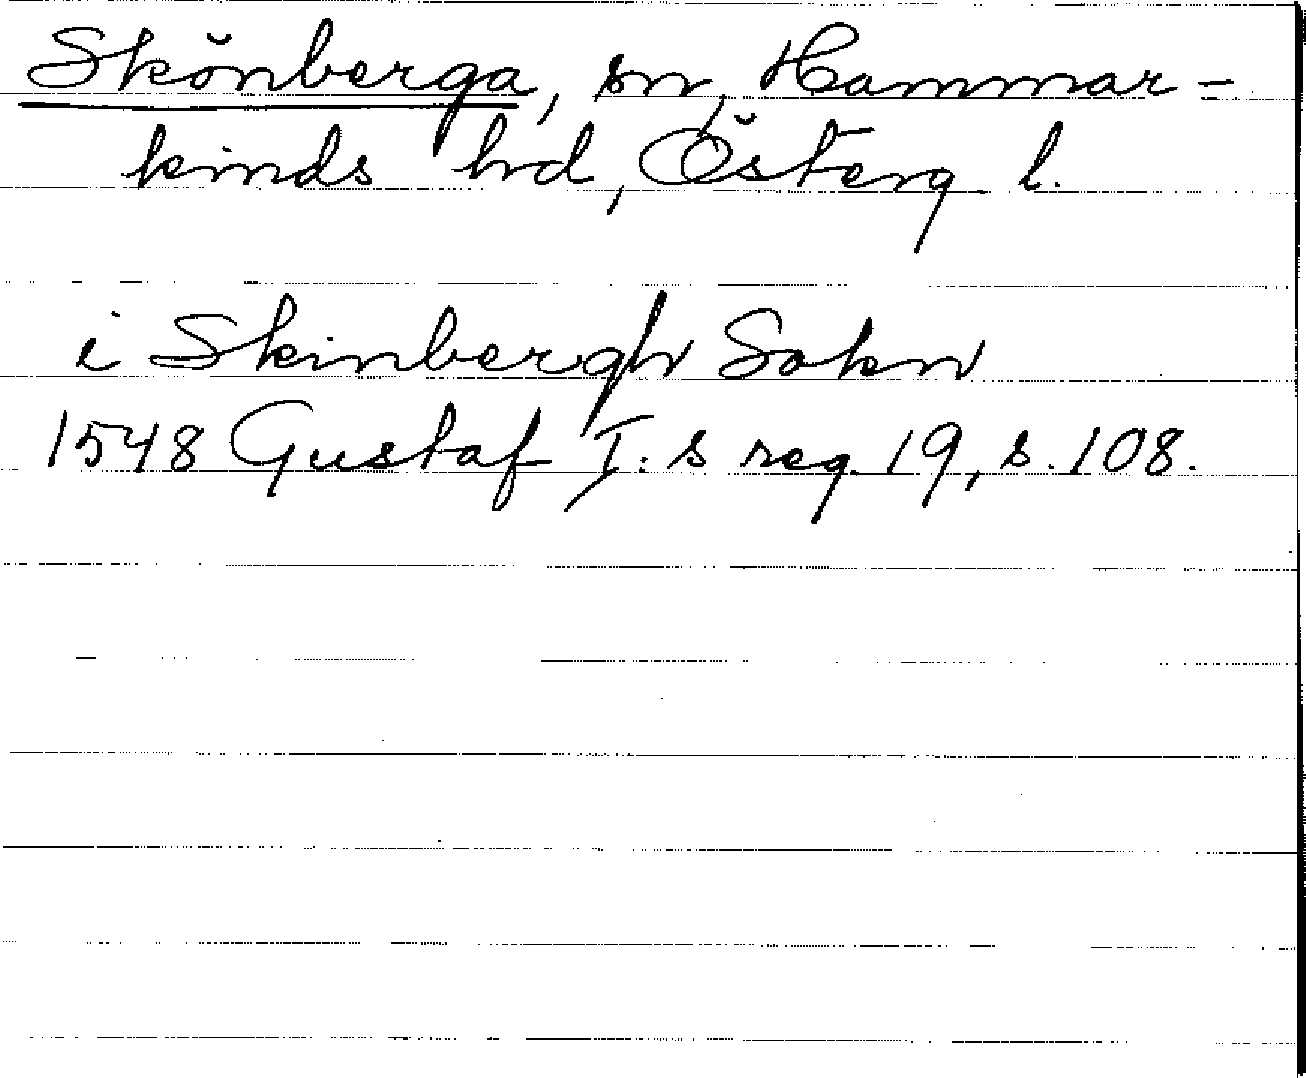 Skönberga, sn, Hammar-
kinds hd, Österg l.
i Skinbergh Sokn
1548 Gustaf I:s reg. 19, s. 108.